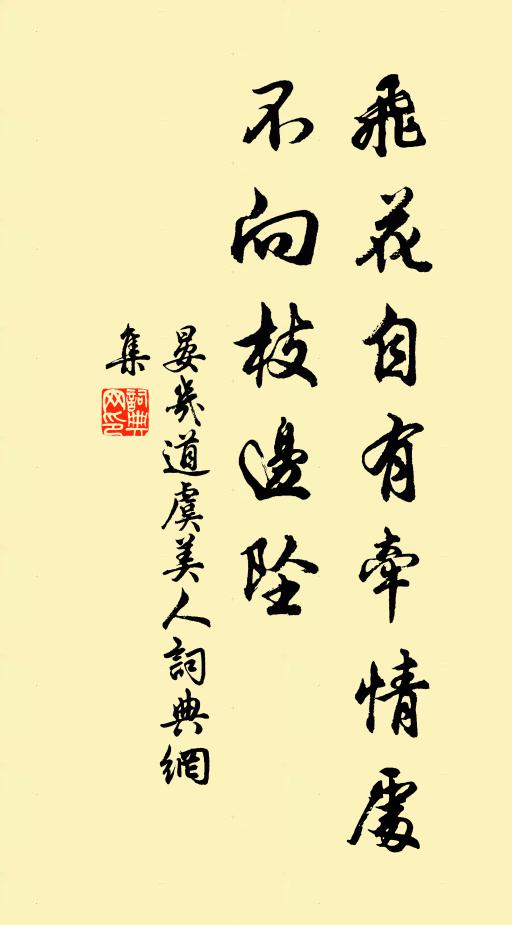 飛花自有牽情處
不向枝邊墜
晏幾道虞美人詞典網
集
詞典
网印